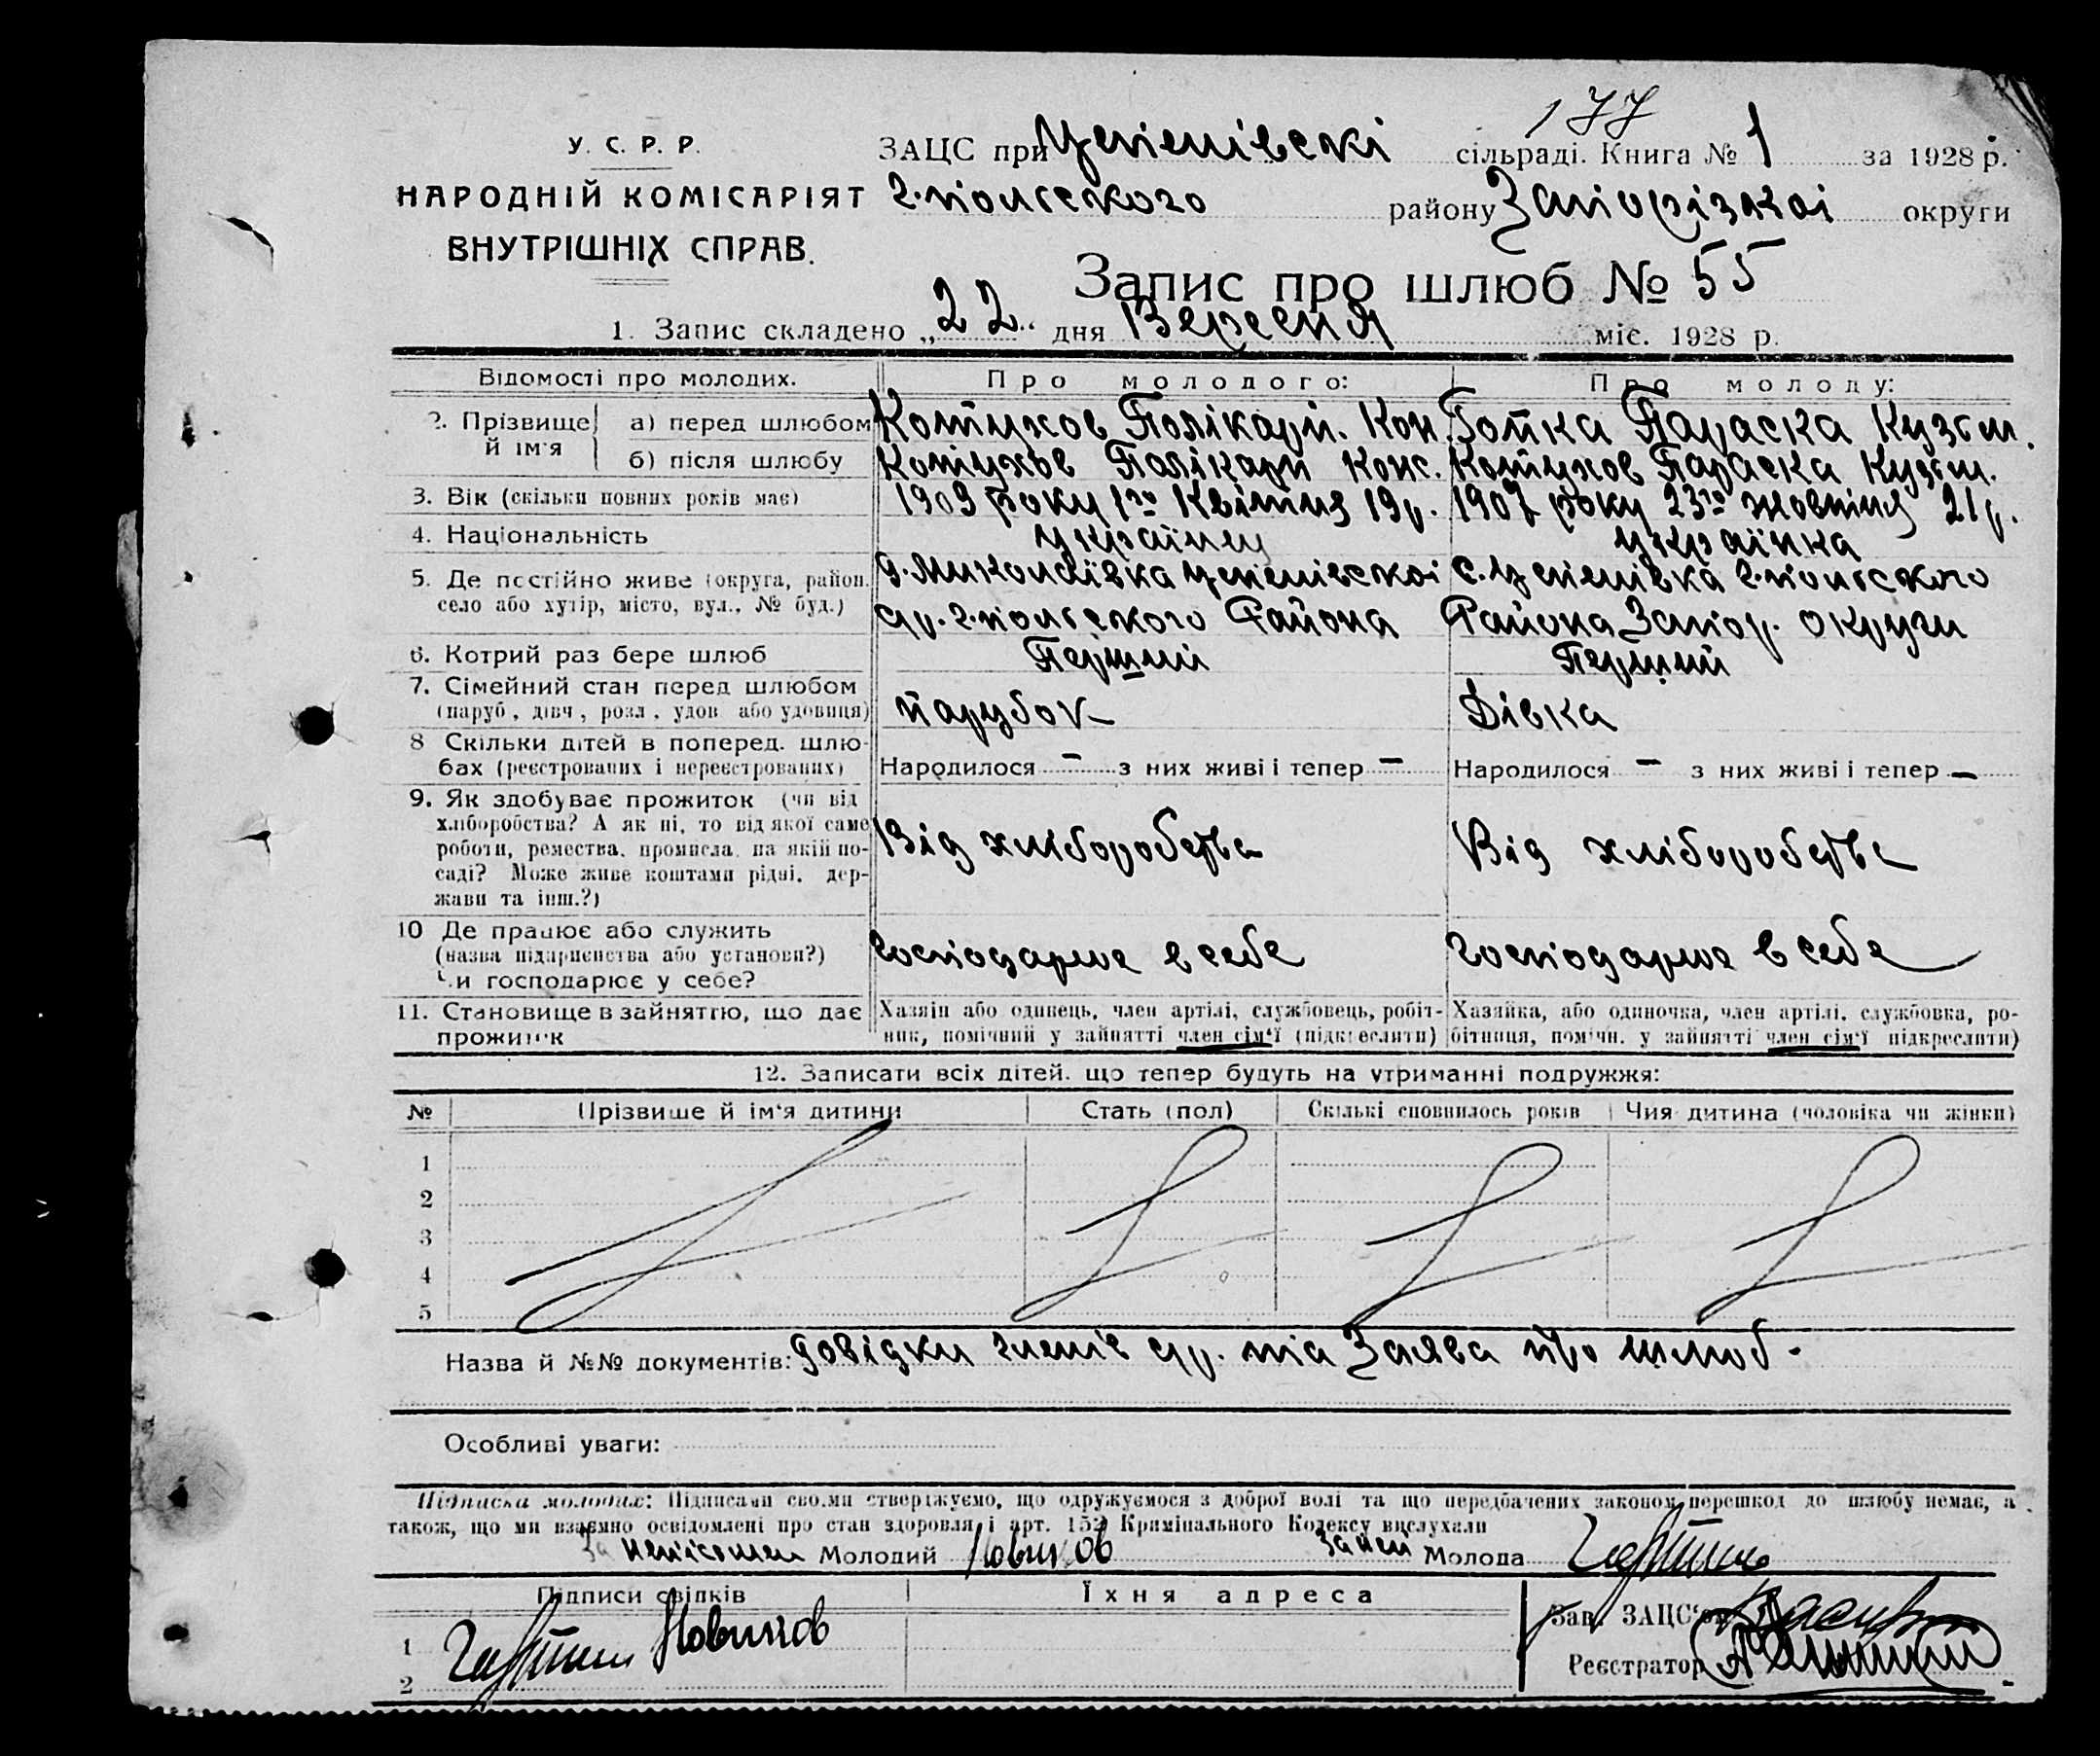 177
У. С. Р. Р.
НАРОДНІЙ КОМІСАРІЯТ
ВНУТРІШНІХ СПРАВ.
ЗАЦС при сільраді. Книга № 1 за 1928 р.
г.польского району Запорізкої округи
Запис про шлюб № 55
1. Запис складено „22“ дня міс. 1928 р.
Відомості про молодих. Про молодого: Про молоду:
2. Прізвище й ім'я
а) перед шлюбом Полікарп. Кон. Параска Кузьм.
б) після шлюбу Полікарп Конс. Параска Кузьм.
3. Вік (скільки повних років має) 1909 року 1го Квітня 19р. 1907 року 23го жовтня 21р.
4. Національність українец українка
5. Де постійно живе (округа, район. село або хутір, місто, вул., № буд.)
д. Миколаївка г.польского Района
г.польского Района Запор. округи
6. Котрий раз бере шлюб Перший Перший
7. Сімейний стан перед шлюбом
(паруб., дівч., розл., удов. або удовиця) парубок Дівка
8 Скільки дітей в поперед. шлюбах (реєстрованих і нереєстрованих)
Народилося – з них живі і тепер – Народилося – з них живі і тепер –
9. Як здобуває прожиток (чи від
хліборобства? А як ні, то від якої саме
роботи, ремества, промисла, на якій по-
саді? Може живе коштами рідні, дер-
жави та інш.?)
Від хліборобства Від хліборобства
10 Де працює або служить
(назва підприємства або установи?)
Чи господарює у себе?
господарює в себе господарює в себе
11. Становище в зайняттю, що дає прожиток
Хазяїн або одинець, член артілі, службовець, робіт-
ник, помічний у зайнятті член сім'ї (підкреслити)
Хазяйка, або одиночка, член артілі, службовка, ро-
бітниця, помічн. у зайнятті член сім'ї підкреслити)
12. Записати всіх дітей, що тепер будуть на утриманні подружжя:
№ Прізвище й ім'я дитини Стать (пол) Скількі сповнилось років Чия дитина (чоловіка чи жінки)
1
2
3
4
5
Назва й №№ документів: довідки членів ср. та Заява про шлюб.
Особливі уваги:
Підписка молодих: Підписами своїми стверджуємо, що одружуємося з доброї волі та що передбачених законом перешкод до шлюбу немає, а
також, що ми взаємно освідомлені про стан здоровля і арт. 152 Кримінального Кодексу вислухали
Молодий Новиков Молода
Підписи свідків Їхня адреса
1 Новиков
2
Зав. ЗАЦС'ом
Реєстратор